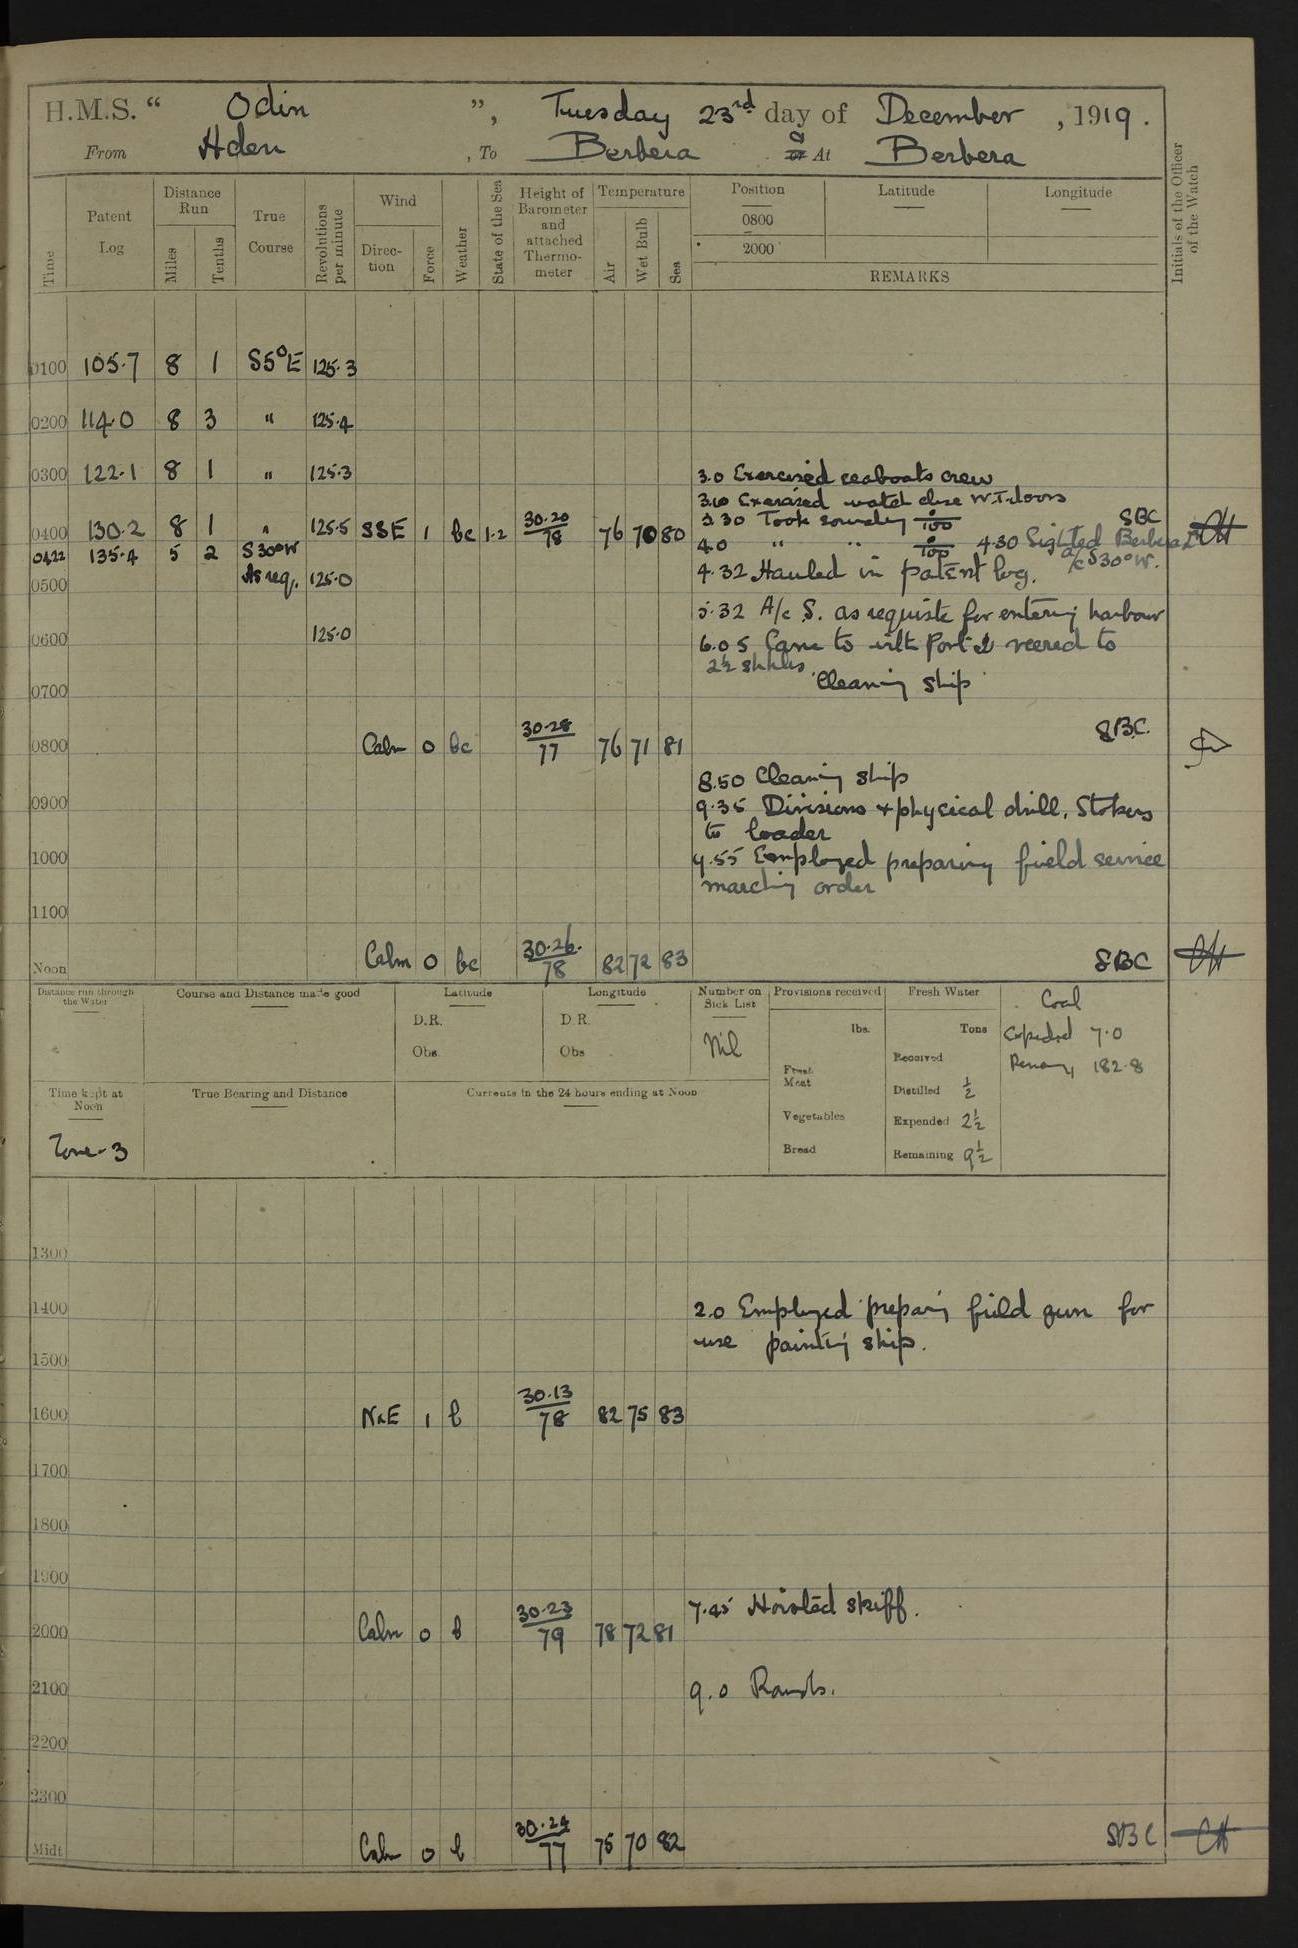 H.M.S. “ Odin ”, Tuesday 23rd day of December, 1919.
From Aden, To Berbera & or At Berbera
Initials of the Officer of the Watch
Time
Patent Log
Distance Run
Miles
Tenths
True Course
Revolutions per minute
Wind
Direction
Force
Weather
State of the Sea
Height of Barometer and attached Thermometer
Temperature
Air
Wet Bulb
Sea
Position Latitude Longitude
0800
2000
REMARKS
0100 105.7 8 1 S5°E 125.3
0200 114.0 8 3 " 125.4
0300 122.1 8 1 " 125.3 3.0 Exercised seaboats crew
3.10 Exercised watch close W.T. doors
3.30 Took sounding 0/100 SBC
0400 130.2 8 1 " 125.5 SSE 1 bc 1.2 30.20/78 76 70 80
4.0 " " 0/100 4.30 Sighted Berbera Lt
a/c S30°W.
0422 135.4 5 2 S30°W
0500 As req. 125.0 4.32 Hauled in patent log.
5.32 A/c S. as requisite for entering harbour
0600 125.0 6.05 Came to with Port & veered to
2½ shkles
0700 Cleaning ship
SBC.
0800 Calm 0 bc 30.28/77 76 71 81
8.50 Cleaning ship
0900 9.35 Divisions + physical drill. Stokers
to loader
1000 9.55 Employed preparing field service
marching order
1100
Noon Calm 0 bc 30.26/78 82 72 83 SBC
Distance run through the Water
Course and Distance made good
Latitude
D.R.
Obs.
Longitude
D.R.
Obs
Number on Sick List
Nil
Provisions received
lbs.
Fresh Meat
Vegetables
Bread
Fresh Water
Tons
Received
Distilled ½
Expended 2½
Remaining 9½
Coal
Expended 7.0
Remaing 182.8
Time kept at Noon
Zone -3
True Bearing and Distance
Currents in the 24 hours ending at Noon
1300
1400 2.0 Employed preparing field gun for
use painting ship.
1500
1600 NxE 1 b 30.13/78 82 75 83
1700
1800
1900
7.45 Hoisted skiff.
2000 Calm 0 b 30.23/79 78 72 81
2100 9.0 Rounds.
2200
2300
Midt. Calm 0 b 30.24/77 75 70 82 SBC